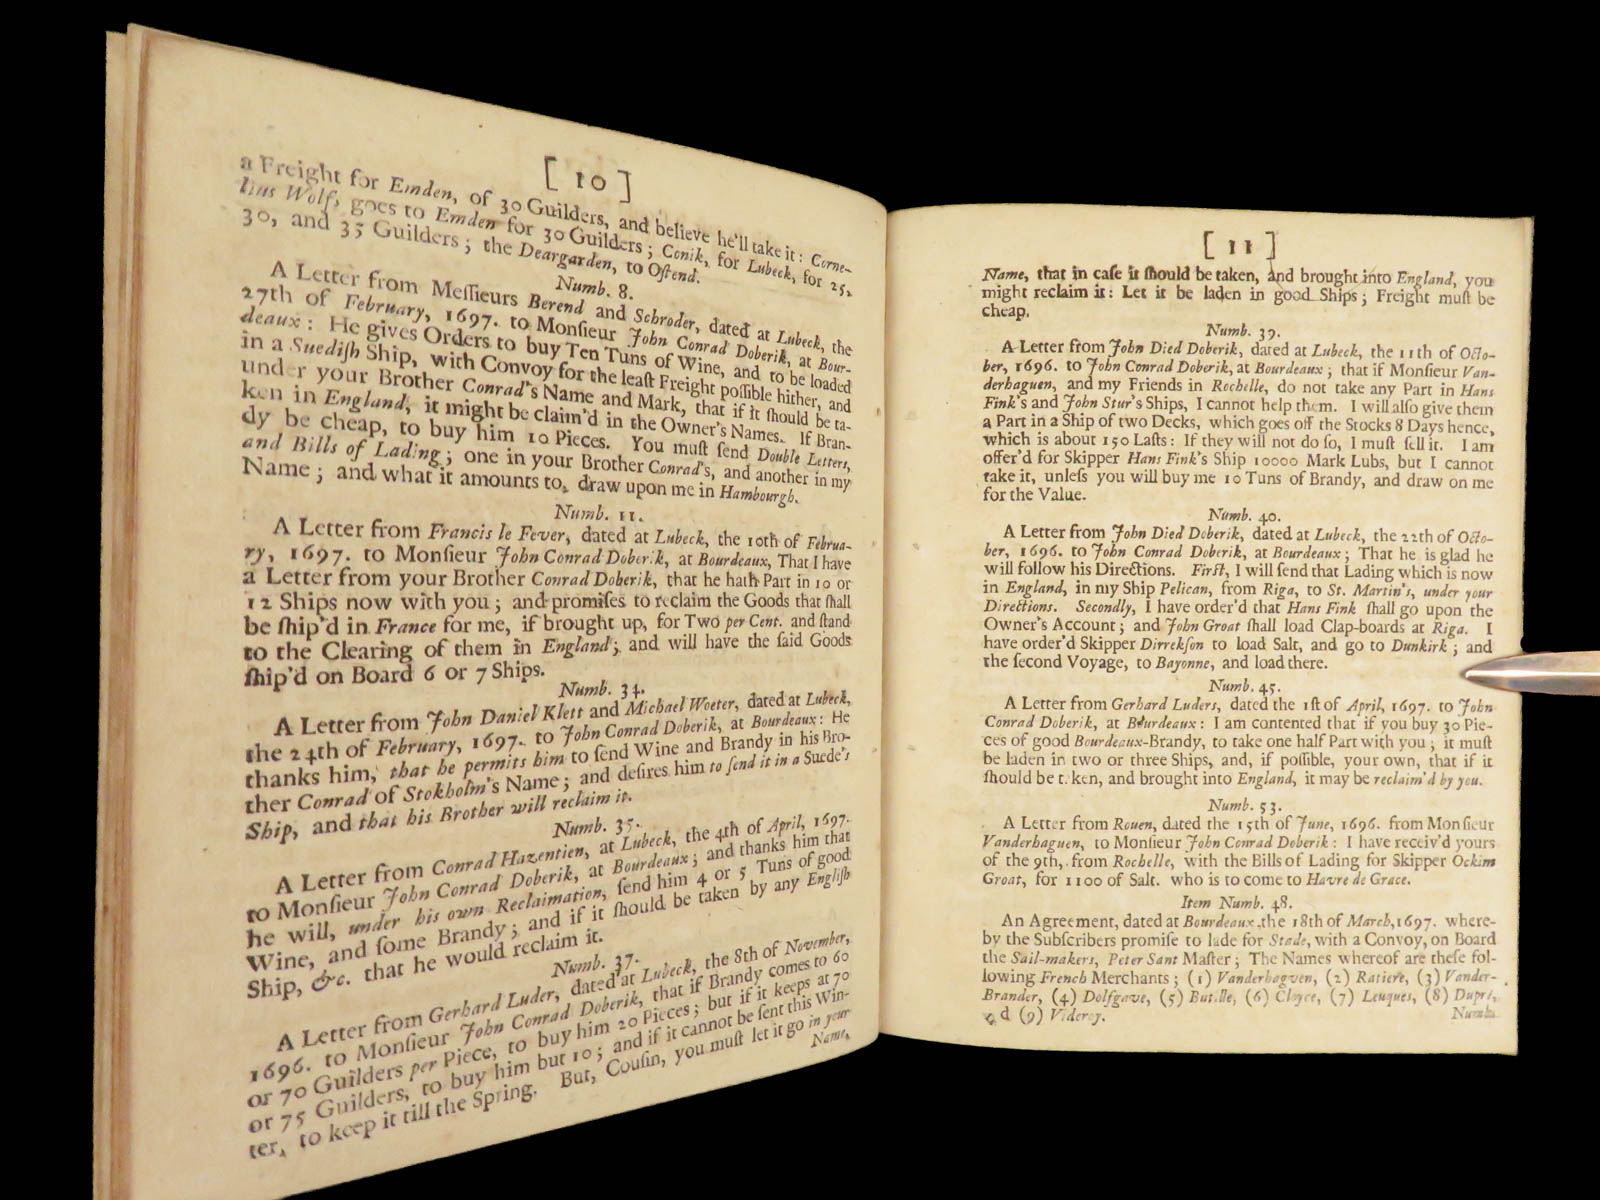 [ 10 ]
a Freight for Emden, of 30 Guilders, and believe he'll take it: Corne-
lius Wolf, goes to Emden for 30 Guilders; Conik, for Lubeck, for 25,
30, and 35 Guilders; the Deargarden, to Oſtend.
Numb. 8.
A Letter from Meſſieurs Berend and Schroder, dated at Lubeck, the
27th of February, 1697. to Monſieur John Conrad Doberik, at Bour-
deaux: He gives Orders to buy Ten Tuns of Wine, and to be loaded
in a Suediſh Ship, with Convoy for the leaſt Freight poſſible hither, and
under your Brother Conrad's Name and Mark, that if it ſhould be ta-
ken in England, it might be claim'd in the Owner's Names. If Bran-
dy be cheap, to buy him 10 Pieces. You muſt ſend Double Letters,
and Bills of Lading; one in your Brother Conrad's, and another in my
Name; and what it amounts to, draw upon me in Hambourgh.
Numb. 11.
A Letter from Francis le Fever, dated at Lubeck, the 10th of Februa-
ry, 1697. to Monſieur John Conrad Doberik, at Bourdeaux, That I have
a Letter from your Brother Conrad Doberik, that he hath Part in 10 or
12 Ships now with you; and promiſes to reclaim the Goods that ſhall
be ſhip'd in France for me, if brought up, for Two per Cent. and ſtand
to the Clearing of them in England; and will have the ſaid Goods
ſhip'd on Board 6 or 7 Ships.
Numb. 34.
A Letter from John Daniel Klett and Michael Woeter, dated at Lubeck,
the 24th of February, 1697. to John Conrad Doberik, at Bourdeaux: He
thanks him, that he permits him to ſend Wine and Brandy in his Bro-
ther Conrad of Stokholm's Name; and deſires him to ſend it in a Suede's
Ship, and that his Brother will reclaim it.
Numb. 35.
A Letter from Conrad Hazentien, at Lubeck, the 4th of April, 1697.
to Monſieur John Conrad Doberik, at Bourdeaux; and thanks him that
he will, under his own Reclaimation, ſend him 4 or 5 Tuns of good
Wine, and ſome Brandy; and if it ſhould be taken by any Engliſh
Ship, &c. that he would reclaim it.
Numb. 37.
A Letter from Gerhard Luder, dated at Lubeck, the 8th of November,
1696. to Monſieur John Conrad Doberik, that if Brandy comes to 60
or 70 Guilders per Piece, to buy him 20 Pieces; but if it keeps at 70
or 75 Guilders, to buy him but 10; and if it cannot be ſent this Win-
ter, to keep it till the Spring. But, Couſin, you muſt let it go in your
Name,
[ 11 ]
Name, that in caſe it ſhould be taken, and brought into England, you
might reclaim it: Let it be laden in good Ships; Freight muſt be
cheap.
Numb. 39.
A Letter from John Died Doberik, dated at Lubeck, the 11th of Octo-
ber, 1696. to John Conrad Doberik, at Bourdeaux; that if Monſieur Van-
derhaguen, and my Friends in Rochelle, do not take any Part in Hans
Fink's and John Stur's Ships, I cannot help them. I will alſo give them
a Part in a Ship of two Decks, which goes off the Stocks 8 Days hence,
which is about 150 Laſts: If they will not do ſo, I muſt ſell it. I am
offer'd for Skipper Hans Fink's Ship 10000 Mark Lubs, but I cannot
take it, unleſs you will buy me 10 Tuns of Brandy, and draw on me
for the Value.
Numb. 40.
A Letter from John Died Doberik, dated at Lubeck, the 22th of Octo-
ber, 1696. to John Conrad Doberik, at Bourdeaux; That he is glad he
will follow his Directions. Firſt, I will ſend that Lading which is now
in England, in my Ship Pelican, from Riga, to St. Martin's, under your
Directions. Secondly, I have order'd that Hans Fink ſhall go upon the
Owner's Account; and John Groat ſhall load Clap-boards at Riga. I
have order'd Skipper Dirrekſon to load Salt, and go to Dunkirk; and
the ſecond Voyage, to Bayonne, and load there.
Numb. 45.
A Letter from Gerhard Luders, dated the 1ſt of April, 1697. to John
Conrad Doberik, at Bourdeaux: I am contented that if you buy 30 Pie-
ces of good Bourdeaux-Brandy, to take one half Part with you; it muſt
be laden in two or three Ships, and, if poſſible, your own, that if it
ſhould be taken, and brought into England, it may be reclaim'd by you.
Numb. 53.
A Letter from Rouen, dated the 15th of June, 1696. from Monſieur
Vanderhaguen, to Monſieur John Conrad Doberik: I have receiv'd yours
of the 9th, from Rochelle, with the Bills of Lading for Skipper Ockim
Groat, for 1100 of Salt. who is to come to Havre de Grace.
Item Numb. 48.
An Agreement, dated at Bourdeaux, the 18th of March, 1697. where-
by the Subſcribers promiſe to lade for Stade, with a Convoy, on Board
the Sail-makers, Peter Sant Maſter; The Names whereof are theſe fol-
lowing French Merchants; (1) Vanderhagven, (2) Ratiere, (3) Vander-
Brander, (4) Dolfgave, (5) (6) Cloyce, (7) Leuques, (8) Dupré,
(9) Viderey.
Numb.